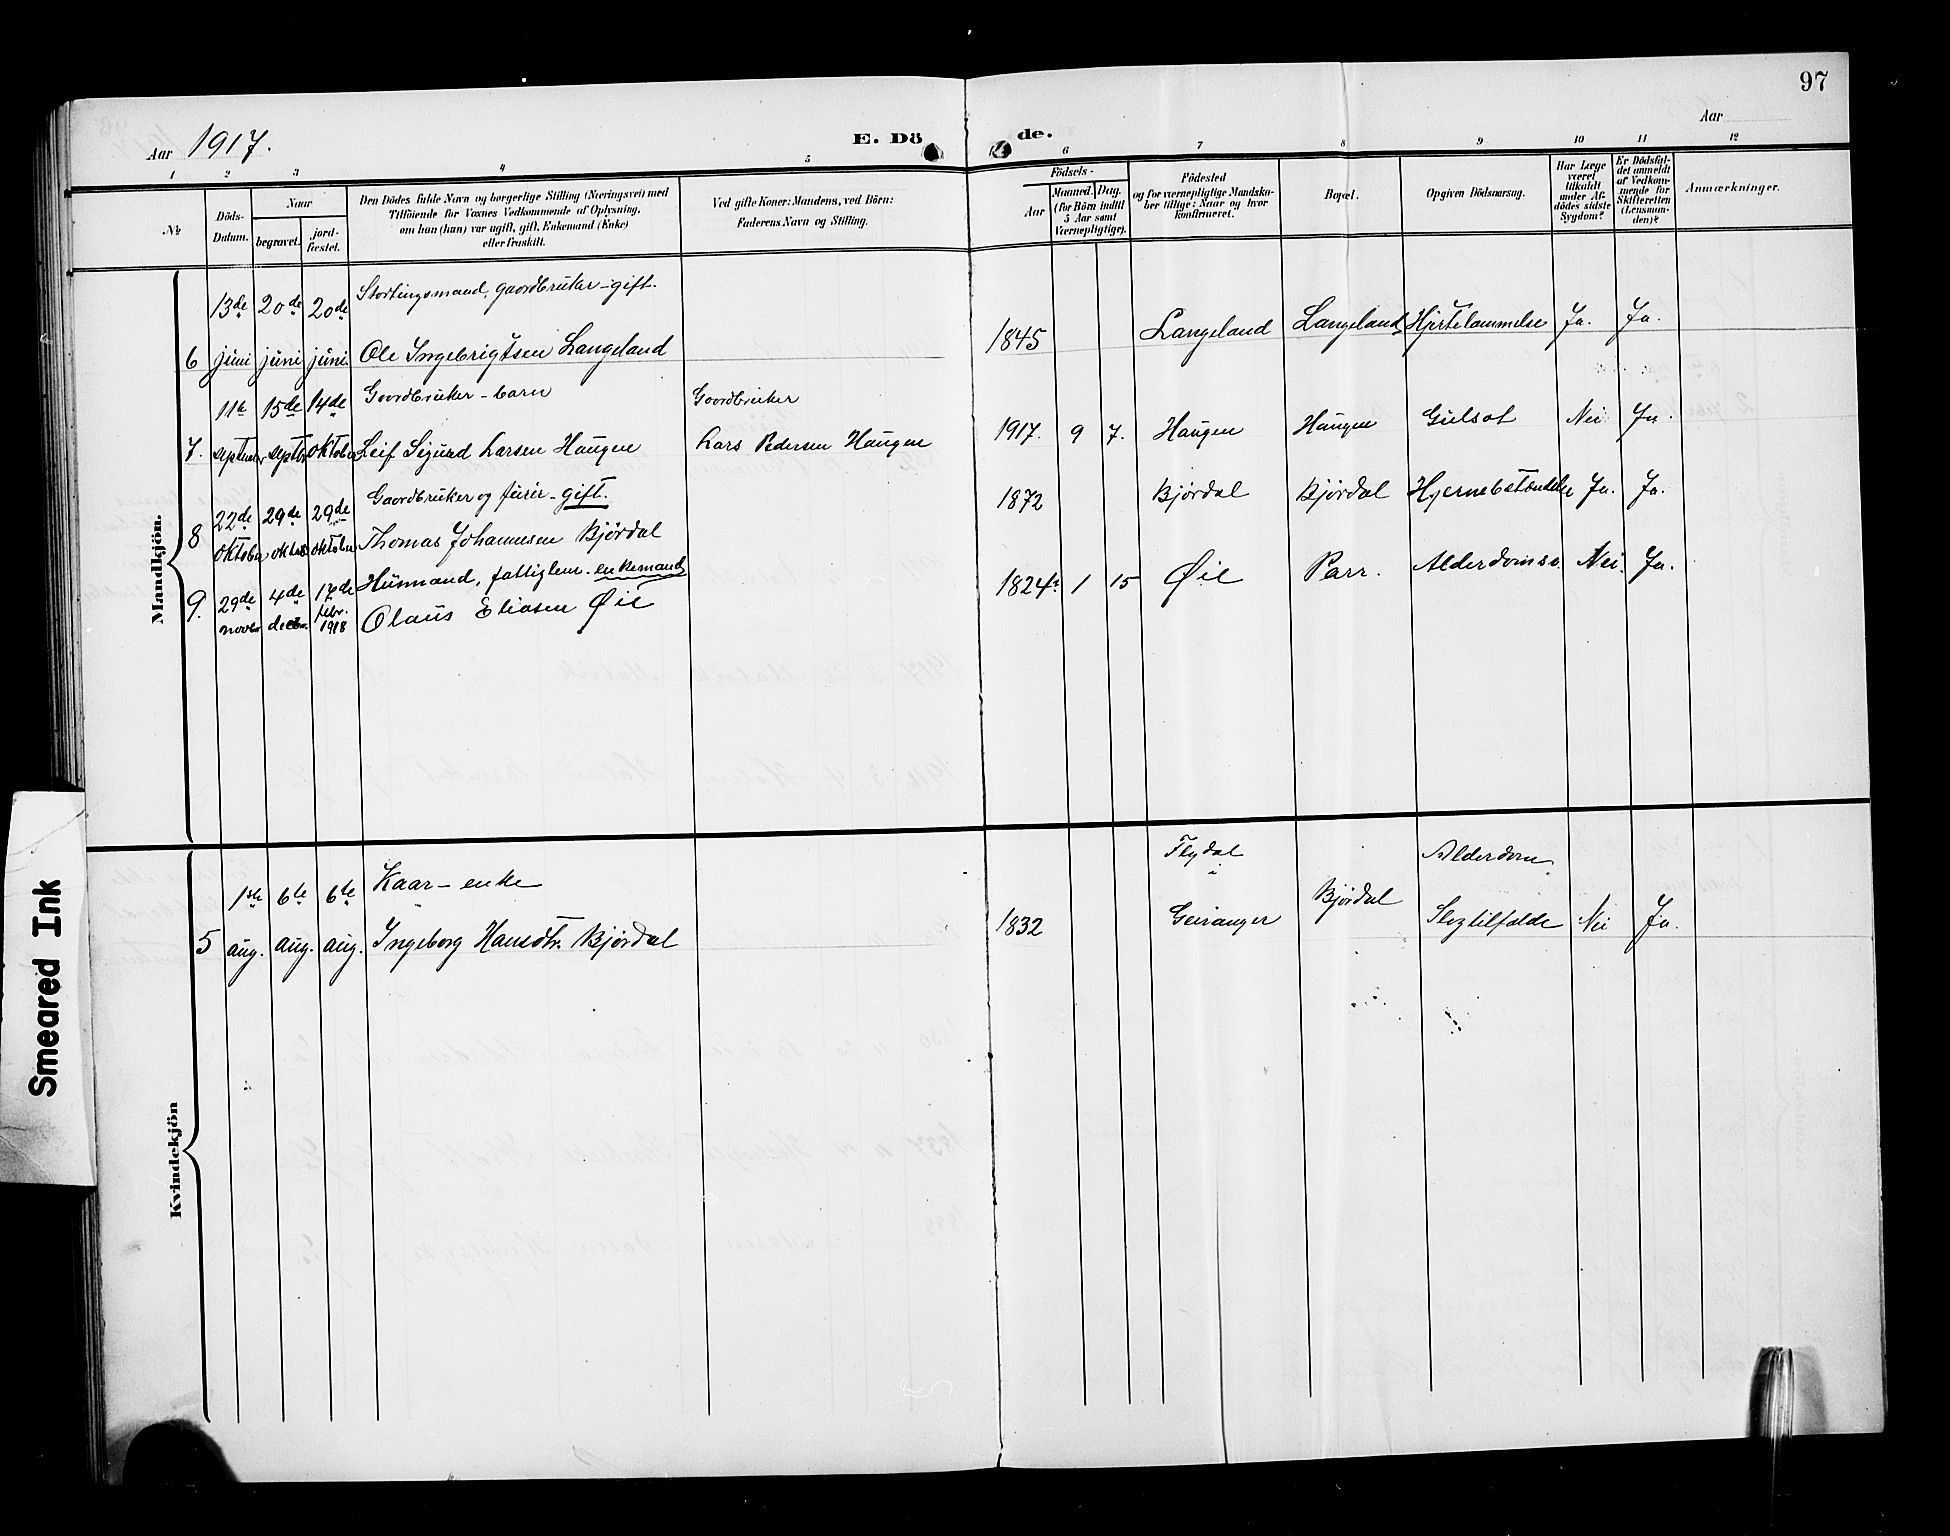 97
Aar 1917.
E. Dö de.
Aar
1 2 3 4 5 6 7 8 9 10 11 12
No
Döds-Datum.
Naar
begravet.
jord-fæstet.
Den Dödes fulde Navn og borgerlige Stilling (Næringsvei) med
Tilföiende for Voxnes Vedkommende af Oplysning,
om han (hun) var ugift, gift, Enkemand (Enke)
eller fraskilt.
Ved gifte Koner: Mandens, ved Börn:
Faderens Navn og Stilling.
Födsels-
Aar
Maaned. Dag.
(for Börn indtil
5 Aar samt
Værnepligtige).
Födested
og for værnepligtige Mandska-
ber tillige: Naar og hvor
konfirmeret.
Bopæl.
Opgiven Dödsaarsag.
Har Læge
været
tilkaldt
under Af-
dödes sidste
Sygdom?
Er Dödsfal-
det anmeldt
af Vedkom-
mende for
Skifteretten
(Lensman-
den)?
Anmærkninger.
Mandkjön.
13de 20de 20de Stortingsmand, gaardbruker - gift.
6 juni juni juni Ole Ingebrigtsen Langeland 1845 Langeland Langeland Hjertelammelse Ja. Ja.
11te 15de 14de Gaardbruker - barn Gaardbruker
7. septembr septbr oktober Leif Sigurd Larsen Haugen Lars Pedersen Haugen 1917. 9 7. Haugen Haugen Gulsot Nei Ja.
22de 29de 29de Gaardbruker og furér - gift.
8 oktober oktob oktober Thomas Johannesen Bjørdal 1872 Bjørdal Bjørdal Hjernebetændelse Ja. Ja.
29de 4de 17de Husmand, fattiglem - enkemand
9. novbr decbr. febr. 1918 Olaus Eliasen Øie 1824 1 15 Øie Parr. Alderdomss. Nei. Ja.
Kvindekjön
1ste 6te 6te Kaar - enke Flydal i Alderdom
5 aug. aug. aug. Ingeborg Hansdtr. Bjørdal 1832 Geiranger Bjørdal Slagtilfælde Nei Ja.
Smeared Ink